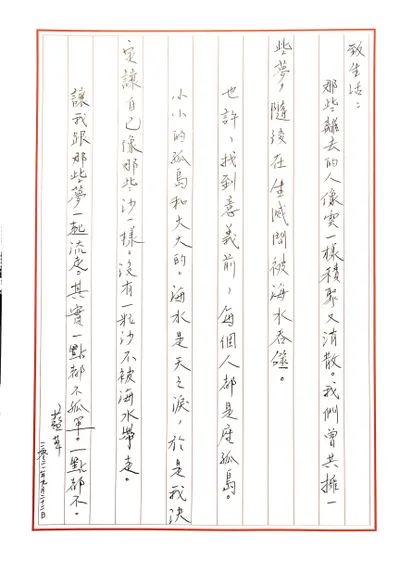 致生活：
那些離去的人像雲一樣積聚又消散。我們曾共擁一
些夢，隨後在生滅間被海水吞噬。
也許，找到意義前，每個人都是座孤島。
小小的孤島和大大的。海水是天之淚，於是我決
定讓自己像那些沙一樣。沒有一粒沙不被海水帶走。
讓我跟那些夢一起流走。其實一點都不孤單。一點都不。
二〇二二年九月二十二日